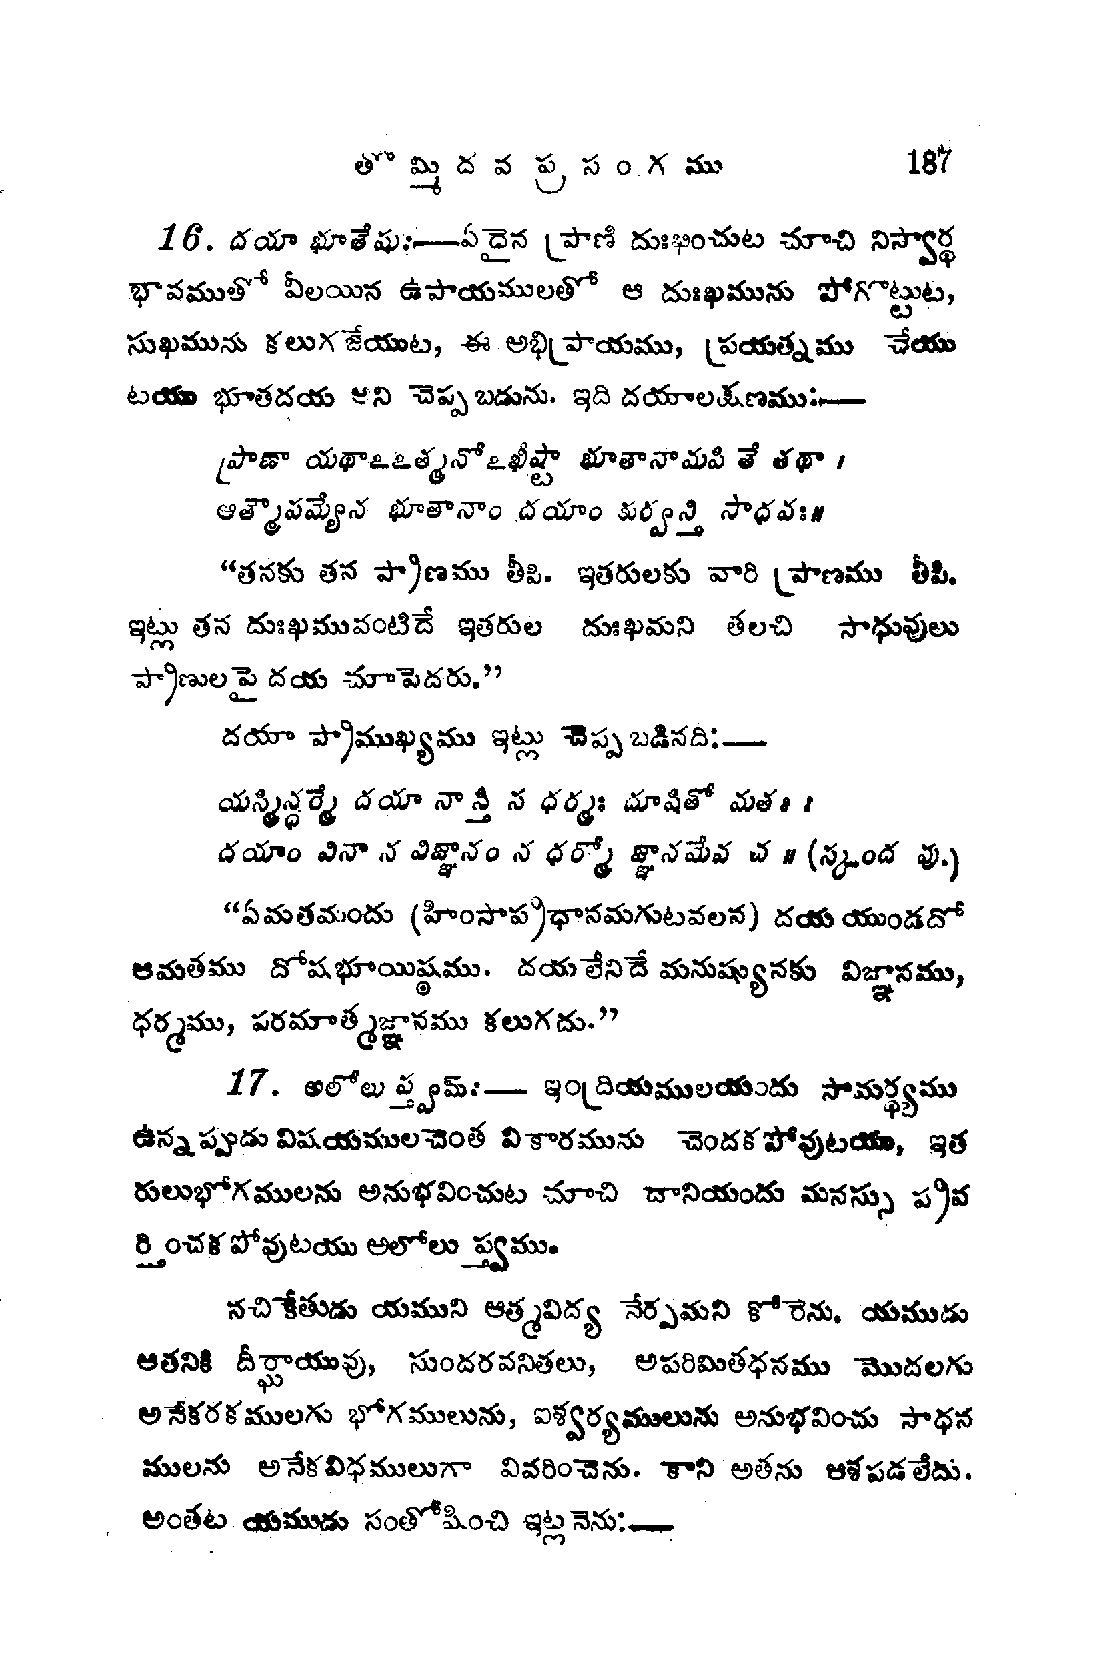 తొమ్మిదవ ప్రసంగము 187
16. దయా భూతేషు:—ఏదైన ప్రాణి దుఃఖించుట చూచి నిస్వార్థ
భావముతో వీలయిన ఉపాయములతో ఆ దుఃఖమును పోగొట్టుట,
సుఖమును కలుగజేయుట, ఈ అభిప్రాయము, ప్రయత్నము చేయు
టయు భూతదయ అని చెప్పబడును. ఇది దయాలక్షణము:—
ప్రాణా యథాఽఽత్మనోఽభీష్టా భూతానామపి తే తథా ।
ఆత్మౌపమ్యేన భూతానాం దయాం కుర్వన్తి సాధవః॥
“తనకు తన ప్రాణము తీపి. ఇతరులకు వారి ప్రాణము తీపి.
ఇట్లు తన దుఃఖమువంటిదే ఇతరుల దుఃఖమని తలచి సాధువులు
ప్రాణులపై దయ చూపెదరు.”
దయా ప్రాముఖ్యము ఇట్లు చెప్పబడినది:—
యస్మిన్ధర్మే దయా నాస్తి న ధర్మః దూషితో మతః ।
దయాం వినా న విజ్ఞానం న ధర్మో జ్ఞానమేవ చ ॥ (స్కంద పు.)
“ఏమతమందు (హింసాప్రధానమగుటవలన) దయ యుండదో
ఆమతము దోషభూయిష్ఠము. దయలేనిదే మనుష్యునకు విజ్ఞానము,
ధర్మము, పరమాత్మజ్ఞానము కలుగదు.”
17. అలోలుప్త్వమ్:— ఇంద్రియములయందు సామర్థ్యము
ఉన్నప్పుడు విషయములచెంత వికారమును చెందకపోవుటయు, ఇత
రులుభోగములను అనుభవించుట చూచి దానియందు మనస్సు ప్రవ
ర్తించకపోవుటయు అలోలుప్త్వము.
నచికేతుడు యముని ఆత్మవిద్య నేర్పుమని కోరెను. యముడు
అతనికి దీర్ఘాయువు, సుందరవనితలు, అపరిమితధనము మొదలగు
అనేకరకములగు భోగములును, ఐశ్వర్యములును అనుభవించు సాధన
ములను అనేకవిధములుగా వివరించెను. కాని అతను ఆశపడలేదు.
అంతట యముడు సంతోషించి ఇట్లనెను:—